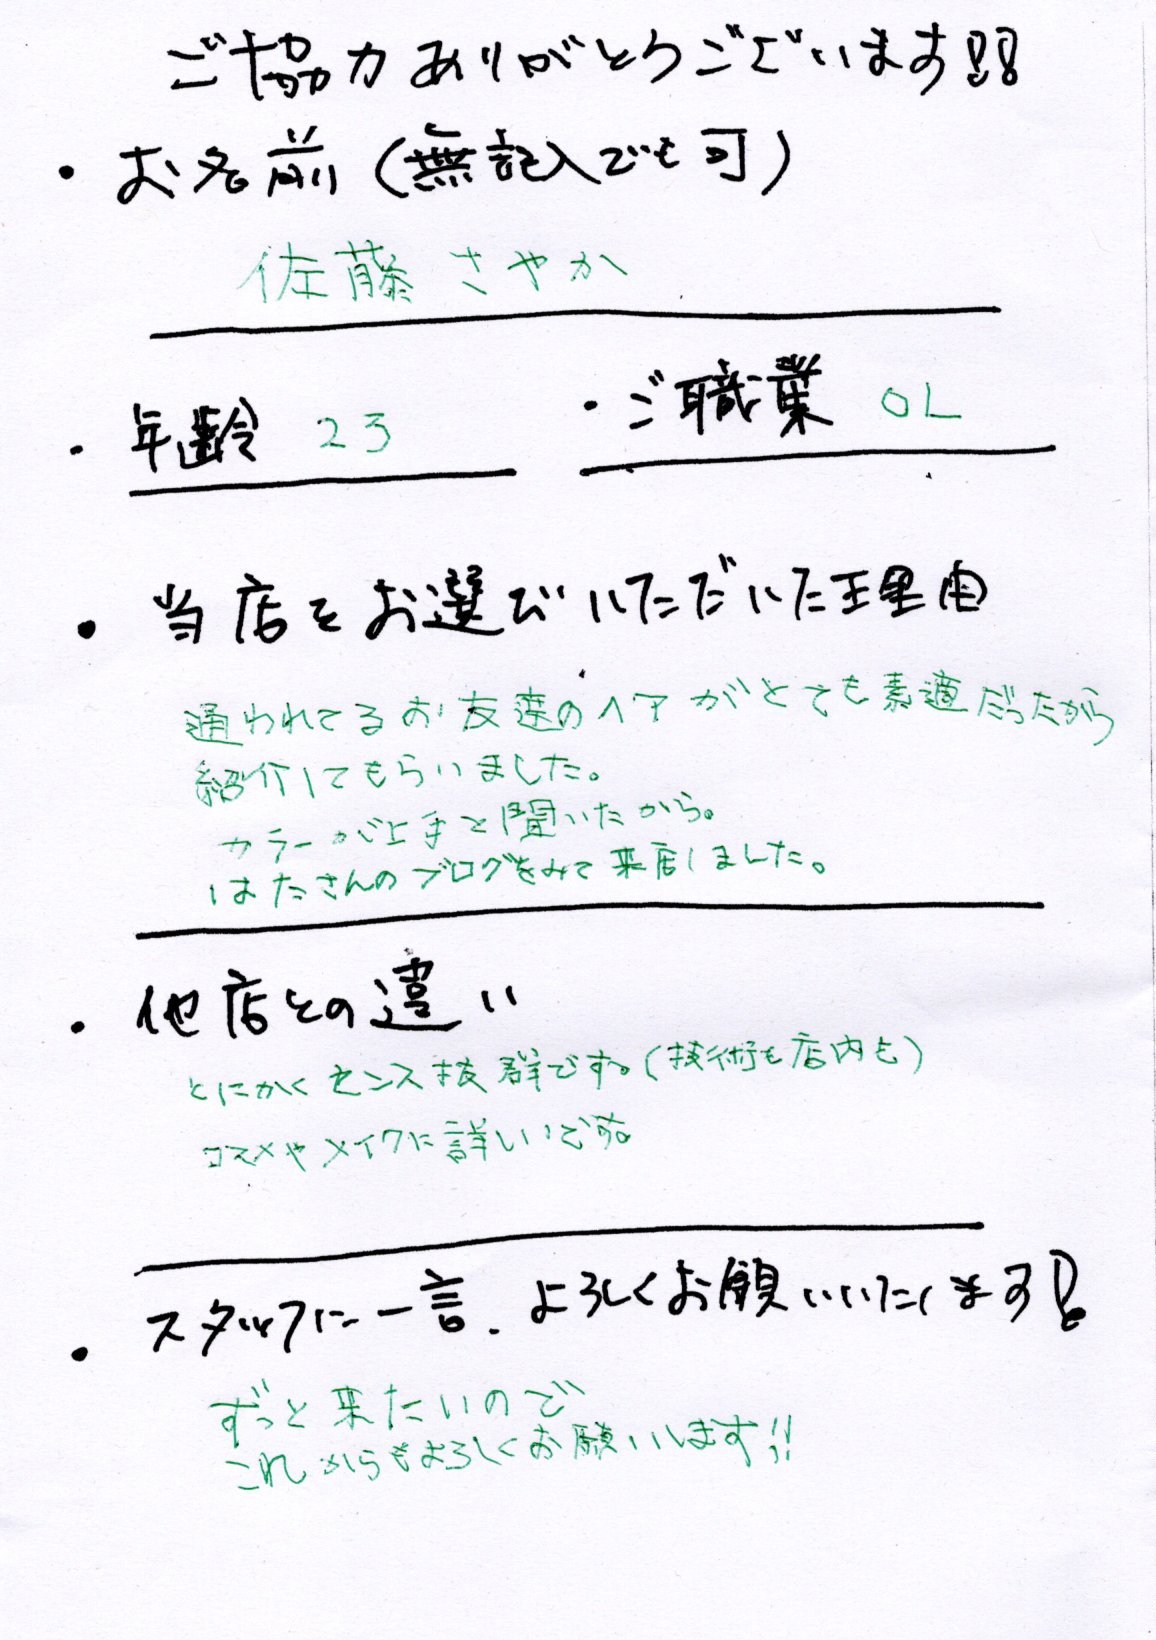 ご協力ありがとうございます!!
・お名前(無記入でも可)
佐藤 さやか
・年齢 23
・ご職業 OL
・当店をお選びいただいた理由
通われてるお友達のヘアがとても素適だったから
紹介してもらいました。
カラーが上手と聞いたから。
はたさんのブログをみて来店しました。
・他店との違い
とにかくセンス抜群です。(技術も店内も)
コスメやメイクに詳しいです。
・スタッフに一言、よろしくお願いいたします!
ずっと来たいので
これからもよろしくお願いします!!